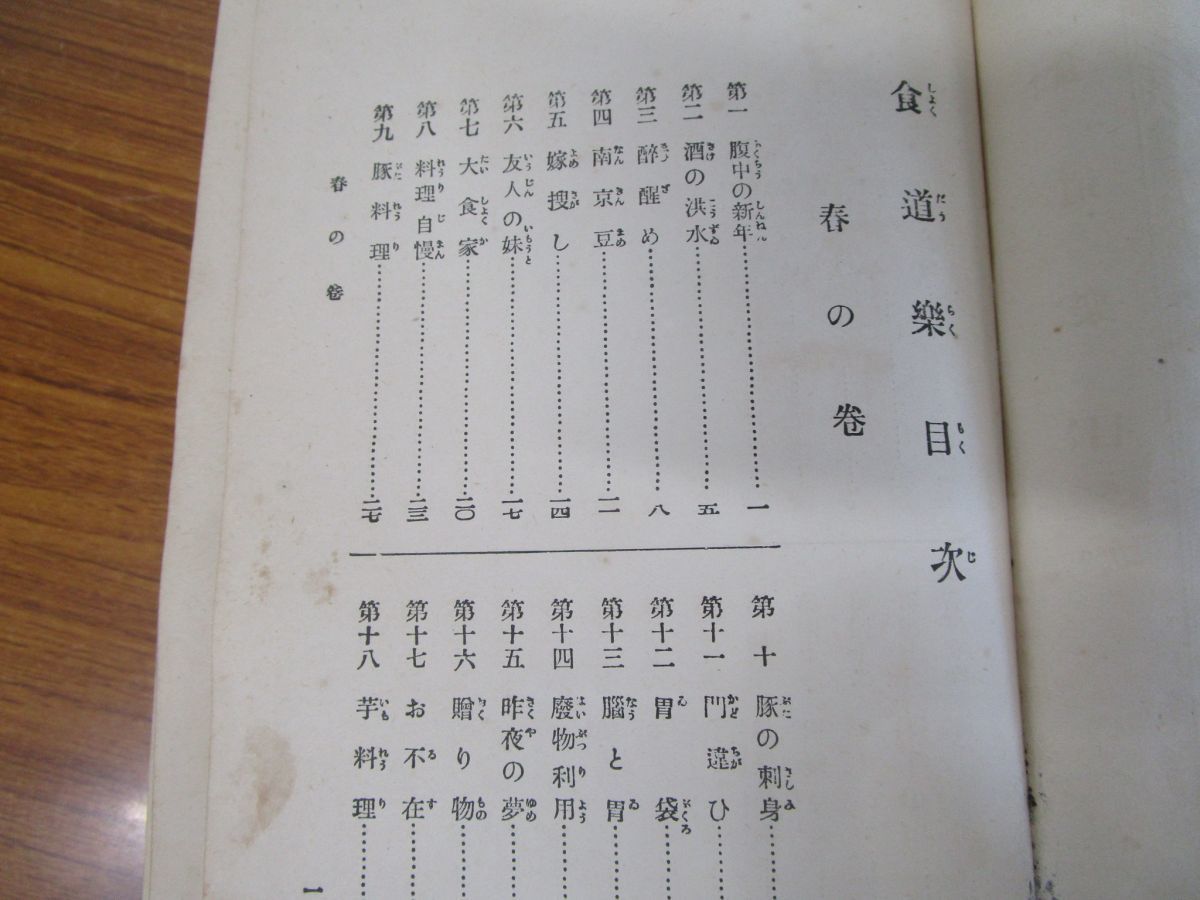 食道樂目次
春の卷
第一 腹中の新年 一
第二 酒の洪水 五
第三 醉醒め 八
第四 南京豆 一一
第五 嫁搜し 一四
第六 友人の妹 一七
第七 大食家 二〇
第八 料理自慢 二三
第九 豚料理 二七
第十 豚の刺身
第十一 門違ひ
第十二 胃袋
第十三 腦と胃
第十四 廢物利用
第十五 昨夜の夢
第十六 贈り物
第十七 お不在
第十八 芋料理
春の卷
一